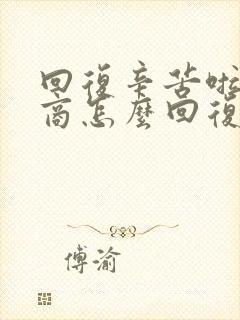 回復辛苦啦
商怎麼回復
傅渝